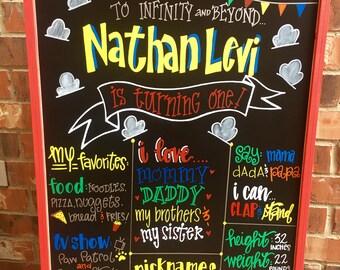 TO INFINITY and BEYOND...
Nathan Levi
is turning one!
my favorites:
food: NOODLES,
PIZZA, NUGGETS,
bread & FRIES!
tv show:
PAW PATROL
and
i love....
mommy
DADDY
my brothers &
my sister
nicknames
say: mama
dada & papa
i can...
CLAP & stand
height: 32
INCHES
weight: 22
POUNDS